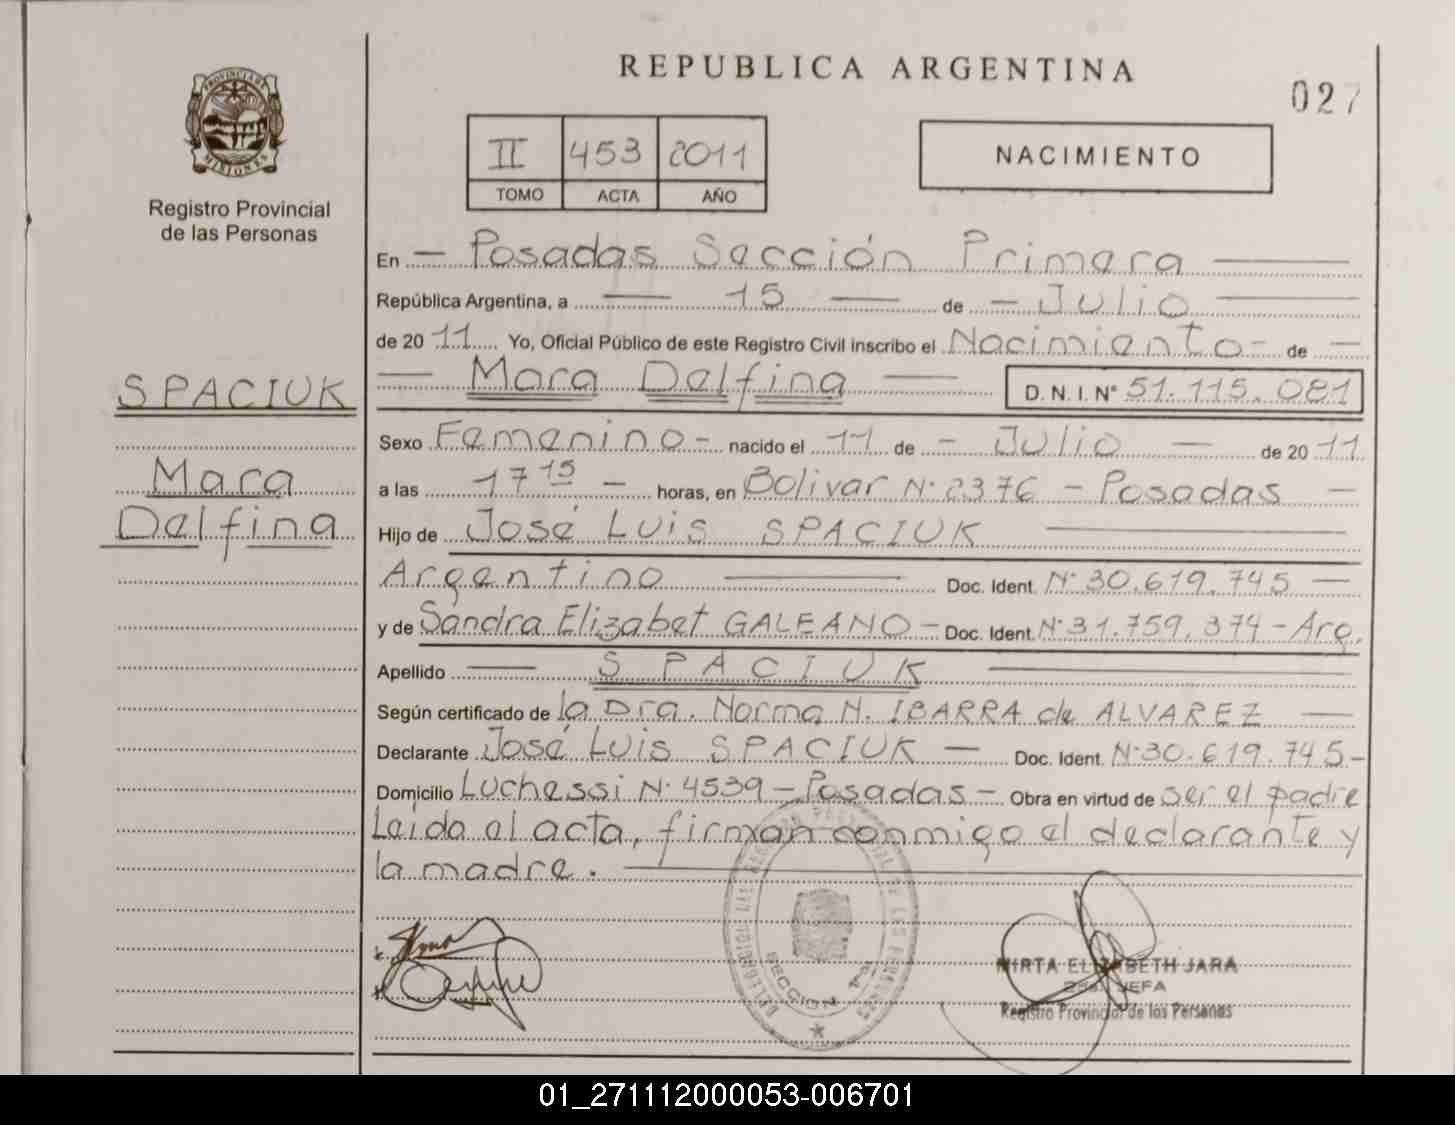 REPUBLICA ARGENTINA
027
PROVINCIA DE MISIONES
Registro Provincial
de las Personas
II 453 2011
TOMO ACTA AÑO
NACIMIENTO
En — Posadas Sección Primera —
República Argentina, a — 15 — de — Julio —
de 20 11 Yo, Oficial Público de este Registro Civil inscribo el Nacimiento - de —
— Mara Delfina — D. N. I. N° 51.115.081
SPACIUK
Mara
Delfina
Sexo Femenino - nacido el 11 de — Julio — de 20 11
a las 17 15 — horas, en Bolivar N° 2376 - Posadas —
Hijo de José Luis SPACIUK —
Argentino — Doc. Ident. N° 30.619.745 —
y de Sandra Elizabet GALEANO - Doc. Ident. N° 31.759.374 - Arg.
Apellido — SPACIUK —
Según certificado de la Dra. Norma N. IBARRA de ALVAREZ —
Declarante José Luis SPACIUK — Doc. Ident. N° 30.619.745 -
Domicilio Luchessi N° 4539 - Posadas - Obra en virtud de ser el padre
Leida el acta, firman conmigo el declarante y
la madre. —
MIRTA ELIZABETH JARA
JEFA
Registro Provincial de las Personas
SECCION 1a
01_271112000053-006701